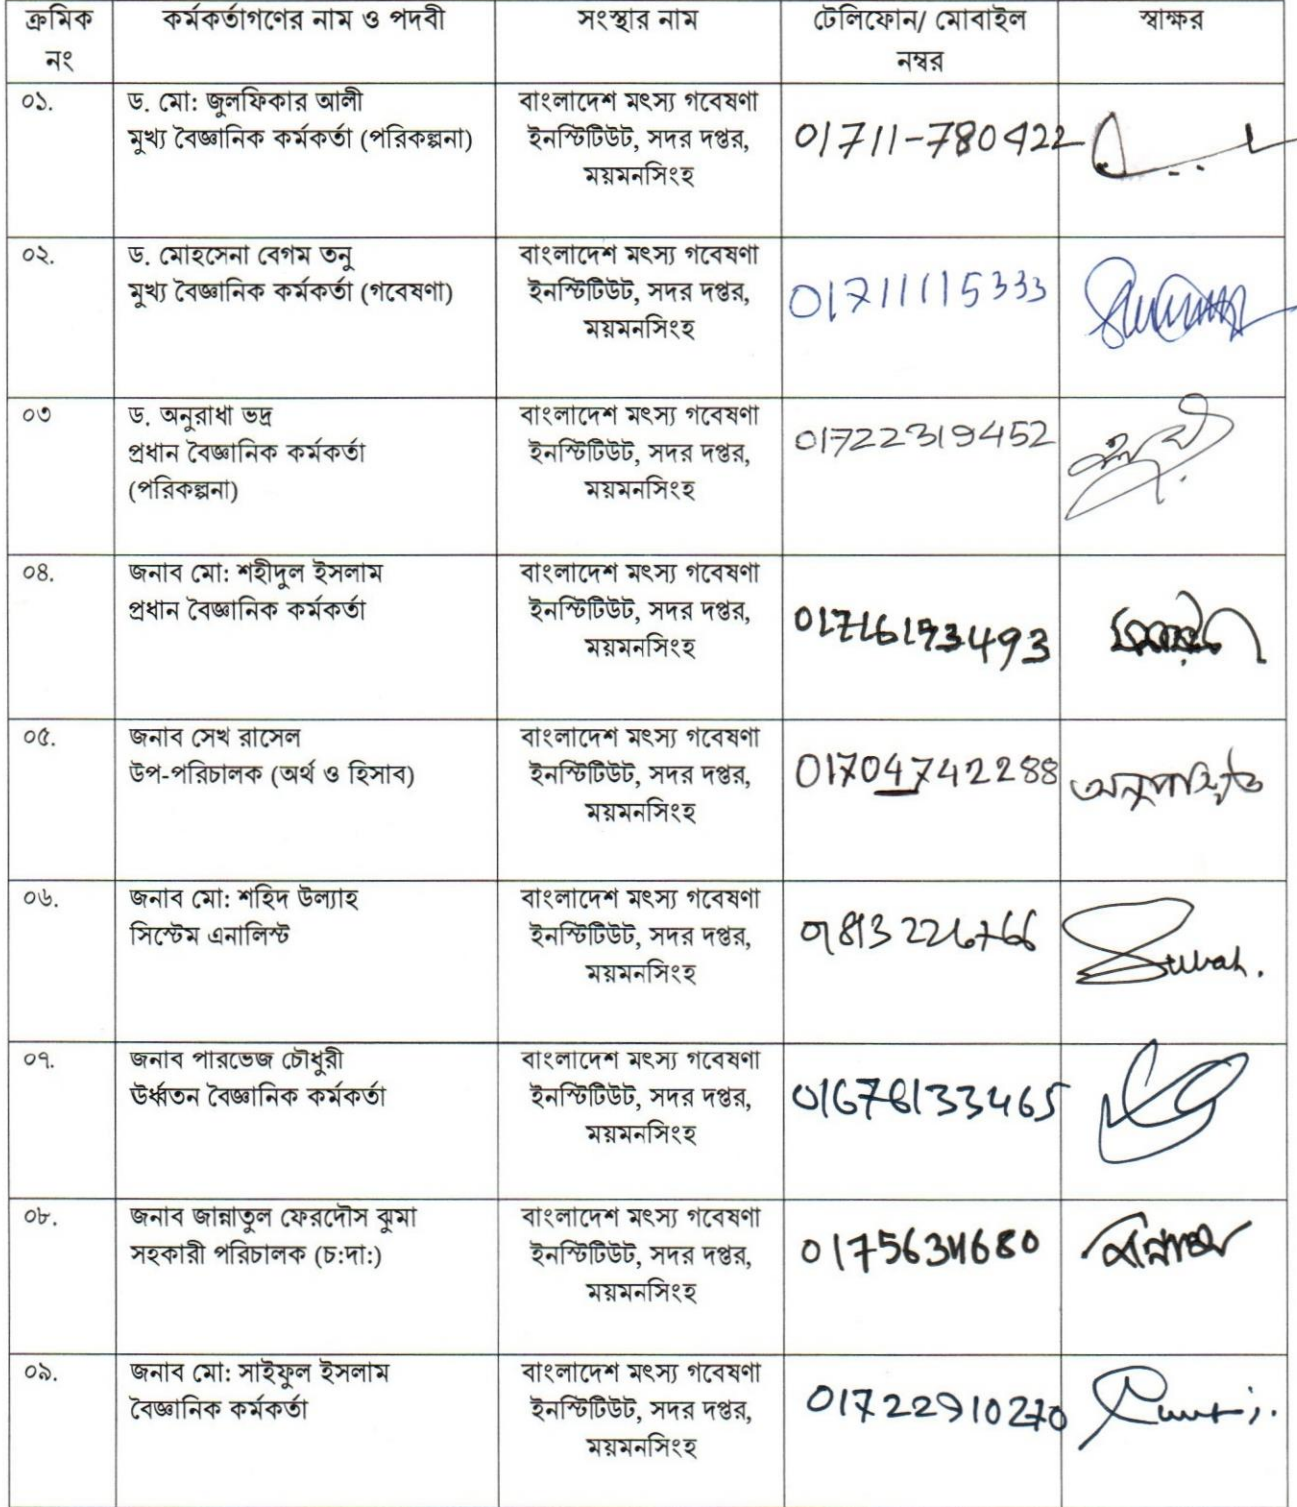 ক্রমিক নং কর্মকর্তাগণের নাম ও পদবী সংস্থার নাম টেলিফোন/ মোবাইল নম্বর স্বাক্ষর
০১. ড. মো: জুলফিকার আলী
মুখ্য বৈজ্ঞানিক কর্মকর্তা (পরিকল্পনা)
বাংলাদেশ মৎস্য গবেষণা
ইনস্টিটিউট, সদর দপ্তর,
ময়মনসিংহ
01711-780422
০২. ড. মোহসেনা বেগম তনু
মুখ্য বৈজ্ঞানিক কর্মকর্তা (গবেষণা)
বাংলাদেশ মৎস্য গবেষণা
ইনস্টিটিউট, সদর দপ্তর,
ময়মনসিংহ
01711115333
০৩ ড. অনুরাধা ভদ্র
প্রধান বৈজ্ঞানিক কর্মকর্তা
(পরিকল্পনা)
বাংলাদেশ মৎস্য গবেষণা
ইনস্টিটিউট, সদর দপ্তর,
ময়মনসিংহ
01722319452
০৪. জনাব মো: শহীদুল ইসলাম
প্রধান বৈজ্ঞানিক কর্মকর্তা
বাংলাদেশ মৎস্য গবেষণা
ইনস্টিটিউট, সদর দপ্তর,
ময়মনসিংহ
০৫. জনাব সেখ রাসেল
উপ-পরিচালক (অর্থ ও হিসাব)
বাংলাদেশ মৎস্য গবেষণা
ইনস্টিটিউট, সদর দপ্তর,
ময়মনসিংহ
01704742288
অনুপস্থিত
০৬. জনাব মো: শহিদ উল্যাহ
সিস্টেম এনালিস্ট
বাংলাদেশ মৎস্য গবেষণা
ইনস্টিটিউট, সদর দপ্তর,
ময়মনসিংহ
০৭. জনাব পারভেজ চৌধুরী
ঊর্ধ্বতন বৈজ্ঞানিক কর্মকর্তা
বাংলাদেশ মৎস্য গবেষণা
ইনস্টিটিউট, সদর দপ্তর,
ময়মনসিংহ
০৮. জনাব জান্নাতুল ফেরদৌস ঝুমা
সহকারী পরিচালক (চ:দা:)
বাংলাদেশ মৎস্য গবেষণা
ইনস্টিটিউট, সদর দপ্তর,
ময়মনসিংহ
০৯. জনাব মো: সাইফুল ইসলাম
বৈজ্ঞানিক কর্মকর্তা
বাংলাদেশ মৎস্য গবেষণা
ইনস্টিটিউট, সদর দপ্তর,
ময়মনসিংহ
01722910270